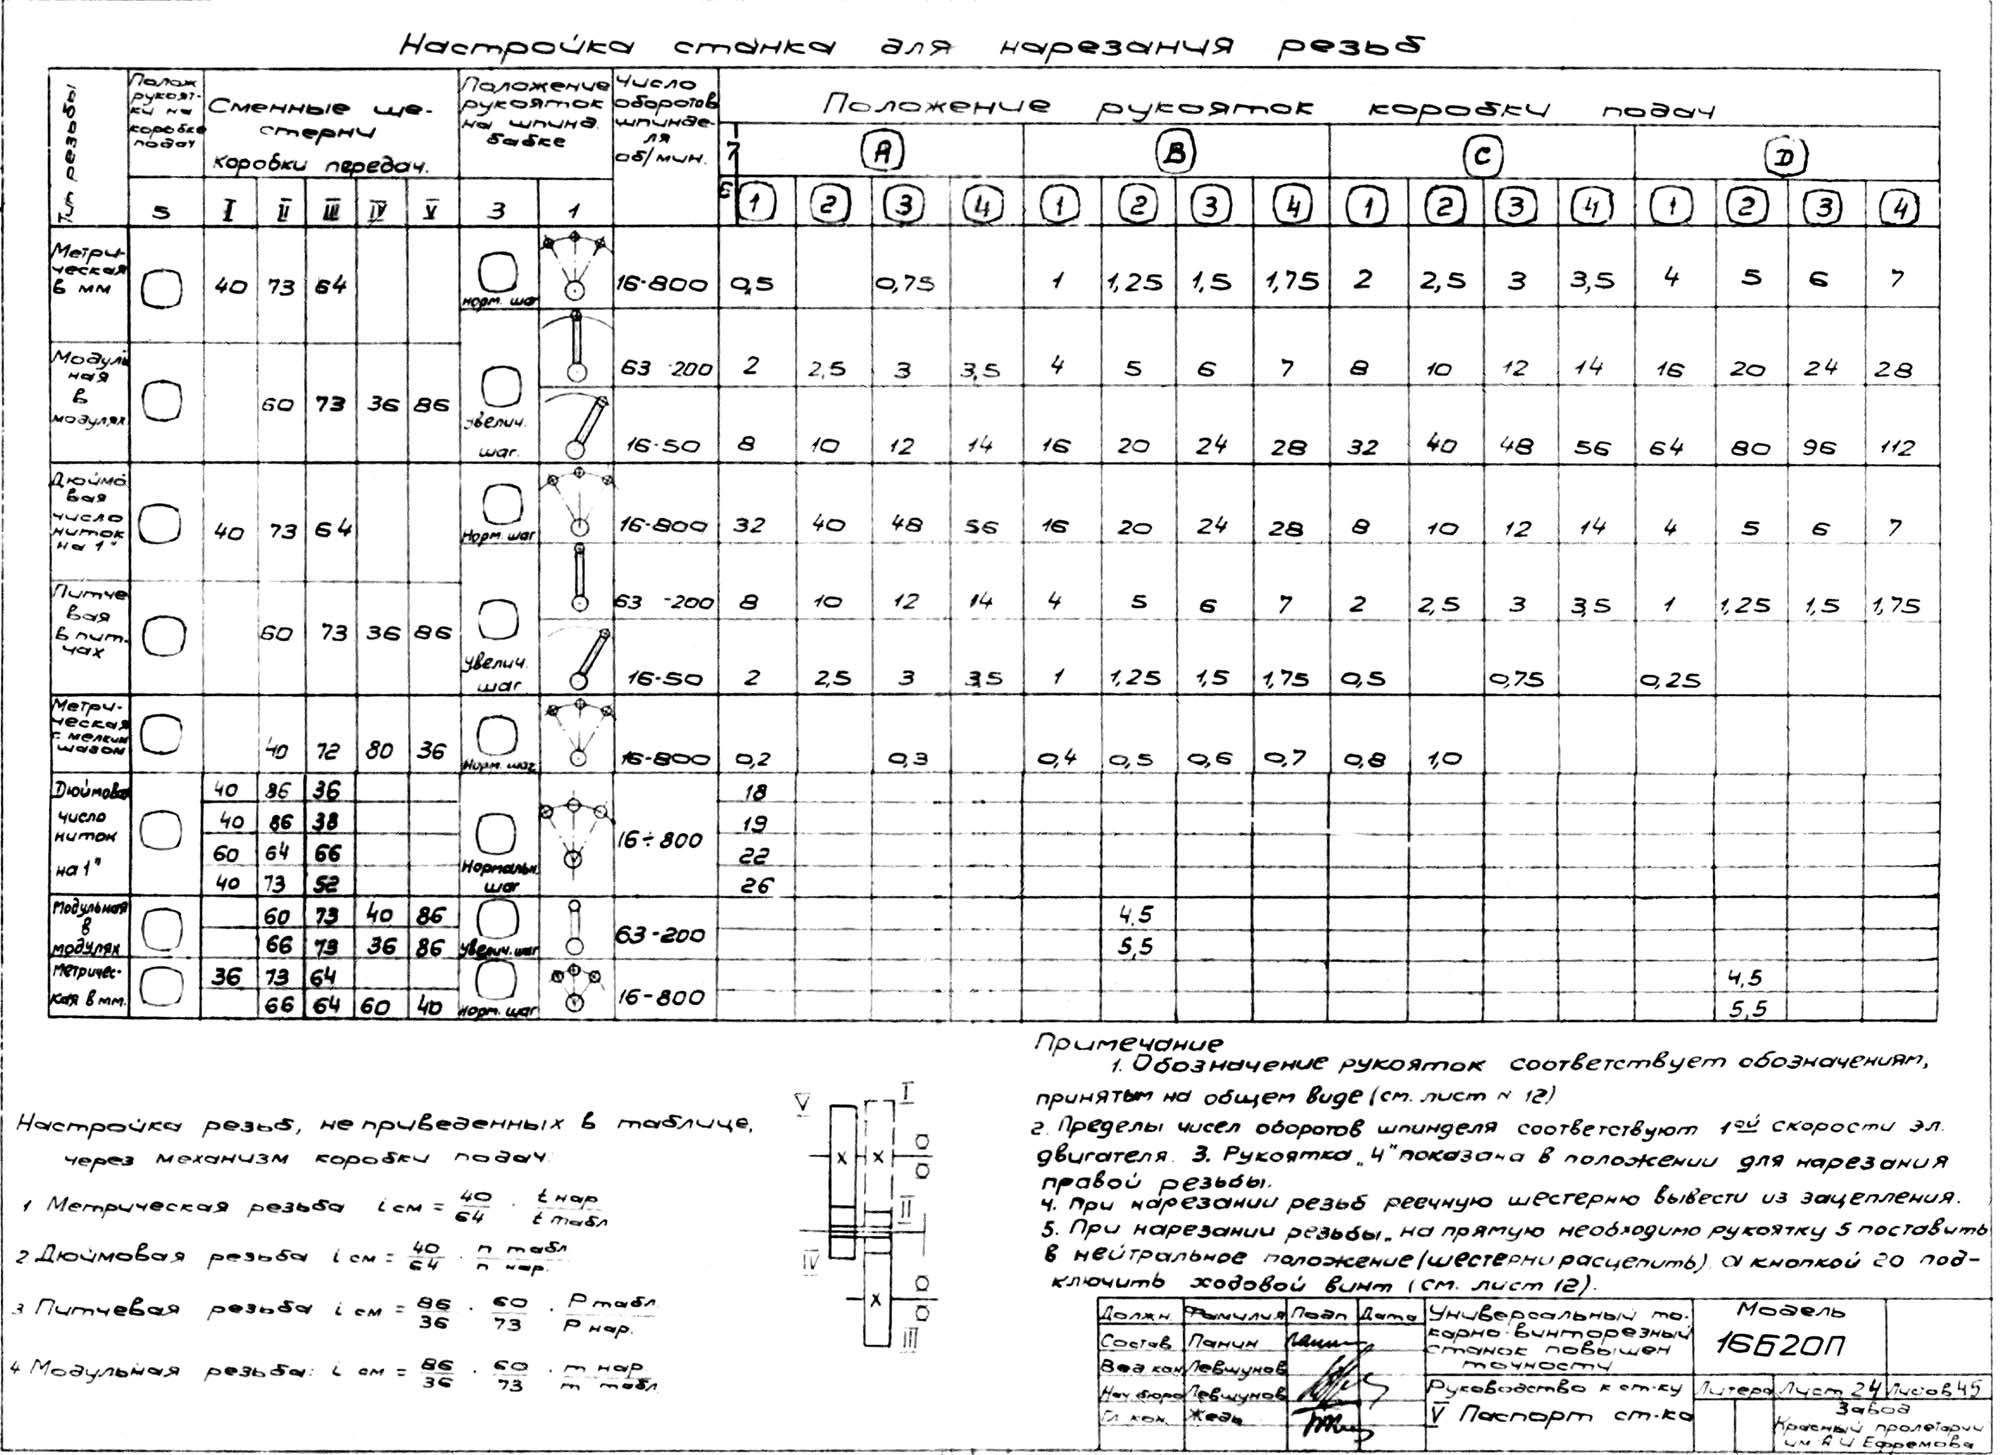 Настройка станка для нарезания резьб
Тип резьбы
Полож рукоят-ки на коробке подач
Сменные ше-
стерни
коробки передач.
Положение рукояток на шпинд. бабке
Число оборотов шпинде-ля об/мин.
Положение рукояток коробки подач
7 A B C D
5 I II III IV V 3 1 6 1 2 3 4 1 2 3 4 1 2 3 4 1 2 3 4
Метри-ческая в мм 40 73 64 норм. шаг 16-800 0,5 0,75 1 1,25 1,5 1,75 2 2,5 3 3,5 4 5 6 7
63-200 2 2,5 3 3,5 4 5 6 7 8 10 12 14 16 20 24 28
Модуль ная в модулях 60 73 36 86 увелич. шаг.
16-50 8 10 12 14 16 20 24 28 32 40 48 56 64 80 96 112
Дюймо вая число ниток на 1" 40 73 64 Норм. шаг 16-800 32 40 48 56 16 20 24 28 8 10 12 14 4 5 6 7
63-200 8 10 12 14 4 5 6 7 2 2,5 3 3,5 1 1,25 1,5 1,75
Питче вая в пит-чах 60 73 36 86 Увелич. шаг
16-50 2 2,5 3 3,5 1 1,25 1,5 1,75 0,5 0,75 0,25
Метри-ческая с мелким шагом 40 72 80 36 Норм. шаг. 16-800 0,2 0,3 0,4 0,5 0,6 0,7 0,8 1,0
Дюймовая число ниток на 1" Нормальн. шаг 16÷800
40 86 36 18
40 86 38 19
60 64 66 22
40 73 52 26
Модульная в модулях Увелич. шаг 63-200
60 73 40 86 4,5
66 73 36 86 5,5
Метричес-кая в мм. норм. шаг 16-800
36 73 64 4,5
66 64 60 40 5,5
Примечание
1. Обозначение рукояток соответствует обозначениям,
принятым на общем виде (см. лист N 12)
2. Пределы чисел оборотов шпинделя соответствуют 1ой скорости эл.
двигателя. 3. Рукоятка „4" показана в положении для нарезания
правой резьбы.
4. При нарезании резьб реечную шестерню вывести из зацепления.
5. При нарезании резьбы „на прямую необходимо рукоятку 5 поставить
в нейтральное положение (шестерни расцепить). а кнопкой 20 под-
ключить ходовой винт (см. лист 12).
Настройка резьб, не приведенных в таблице,
через механизм коробки подач:
1 Метрическая резьба i см = 40/64 · t нар/t табл
2 Дюймовая резьба i см = 40/64 · n табл/n нар.
3 Питчевая резьба i см = 86/36 · 60/73 · P табл/P нар.
4 Модульная резьба: i см = 86/36 · 60/73 · m нар/m табл.
V I
II
IV
III
Должн. Фамилия Подп Дата
Состав Панин
Вед кон Левшунов
Нач бюро Левшунов
Гл. кон. Жедь
Универсальный то-
карно-винторезный
станок повышен
точности
Модель
16Б20П
Руководство к ст-ку
V Паспорт ст-ка
Литера Лист 24 Листов 45
Завод
Красный пролетарий
им А И Ефремова